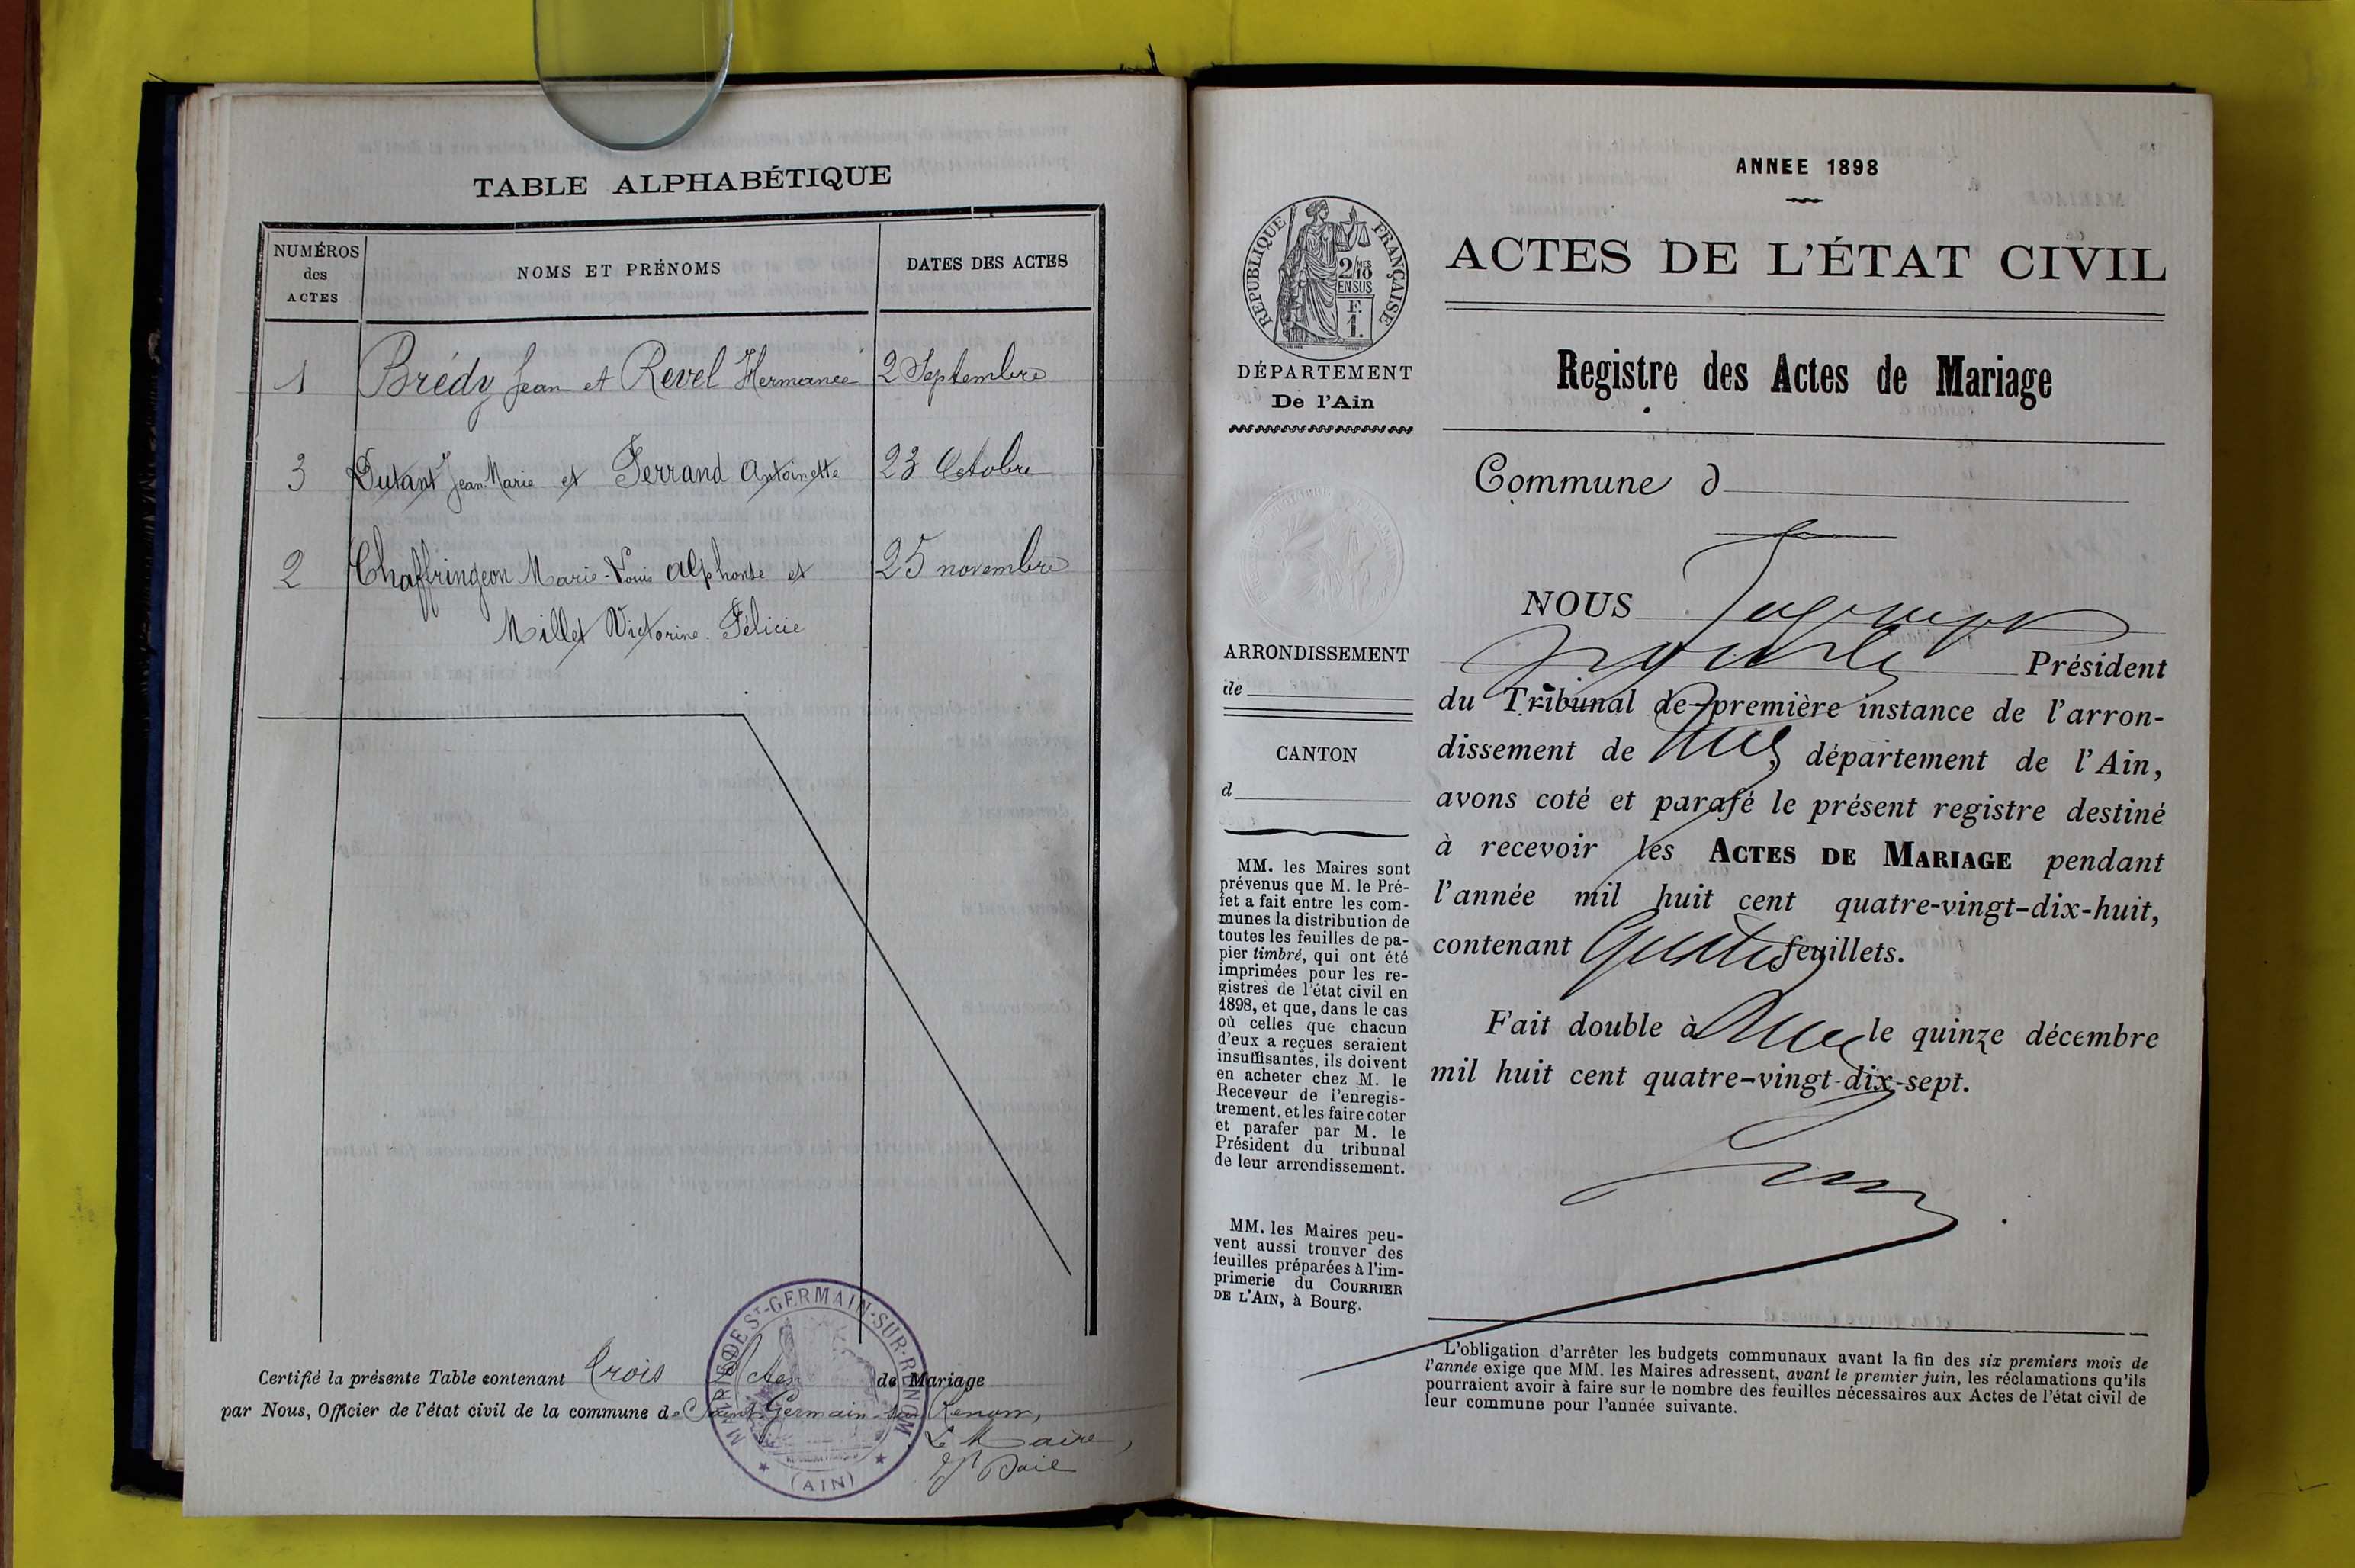 TABLE ALPHABÉTIQUE
NUMÉROS
des
ACTES
NOMS ET PRÉNOMS
DATES DES ACTES
1 Brédy Jean et Revel Hermance 2 Septembre
3 Dutant Jean-Marie et Ferrand Antoinette 23 Octobre
2 Chaffringeon Marie-Louis Alphonse et 25 novembre
Millet Victorine Félicie
Certifié la présente Table contenant trois Actes de Mariage
par Nous, Officier de l'état civil de la commune de Saint-Germain-sur Renom,
Le Maire,
MAIRIE DE ST-GERMAIN-SUR-RENOM
(AIN)
ANNEE 1898
ACTES DE L'ÉTAT CIVIL
RÉPUBLIQUE FRANÇAISE
2/10 MES
EN SUS
F.
1.
DÉPARTEMENT
De l'Ain
Registre des Actes de Mariage
Commune d
NOUS
ARRONDISSEMENT
de
CANTON
d
Président
du Tribunal de première instance de l'arron-
dissement de département de l'Ain,
avons coté et parafé le présent registre destiné
à recevoir les ACTES DE MARIAGE pendant
l'année mil huit cent quatre-vingt-dix-huit,
contenant feuillets.
Fait double à le quinze décembre
mil huit cent quatre-vingt-dix-sept.
MM. les Maires sont
prévenus que M. le Pré-
fet a fait entre les com-
munes la distribution de
toutes les feuilles de pa-
pier timbré, qui ont été
imprimées pour les re-
gistres de l'état civil en
1898, et que, dans le cas
où celles que chacun
d'eux a reçues seraient
insuffisantes, ils doivent
en acheter chez M. le
Receveur de l'enregis-
trement, et les faire coter
et parafer par M. le
Président du tribunal
de leur arrondissement.
MM. les Maires peu-
vent aussi trouver des
feuilles préparées à l'im-
primerie du COURRIER
DE L'AIN, à Bourg.
L'obligation d'arrêter les budgets communaux avant la fin des six premiers mois de
l'année exige que MM. les Maires adressent, avant le premier juin, les réclamations qu'ils
pourraient avoir à faire sur le nombre des feuilles nécessaires aux Actes de l'état civil de
leur commune pour l'année suivante.